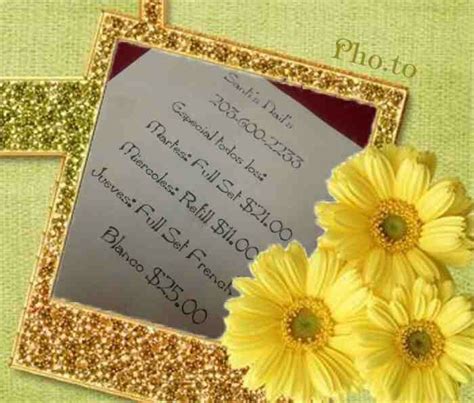 Pho.to
Santi's Nail's
203-600-2253
Especial todos los:
Martes: Full Set $21.00
Miercoles: Refill $11.00
Jueves: Full Set French
Blanco $25.00